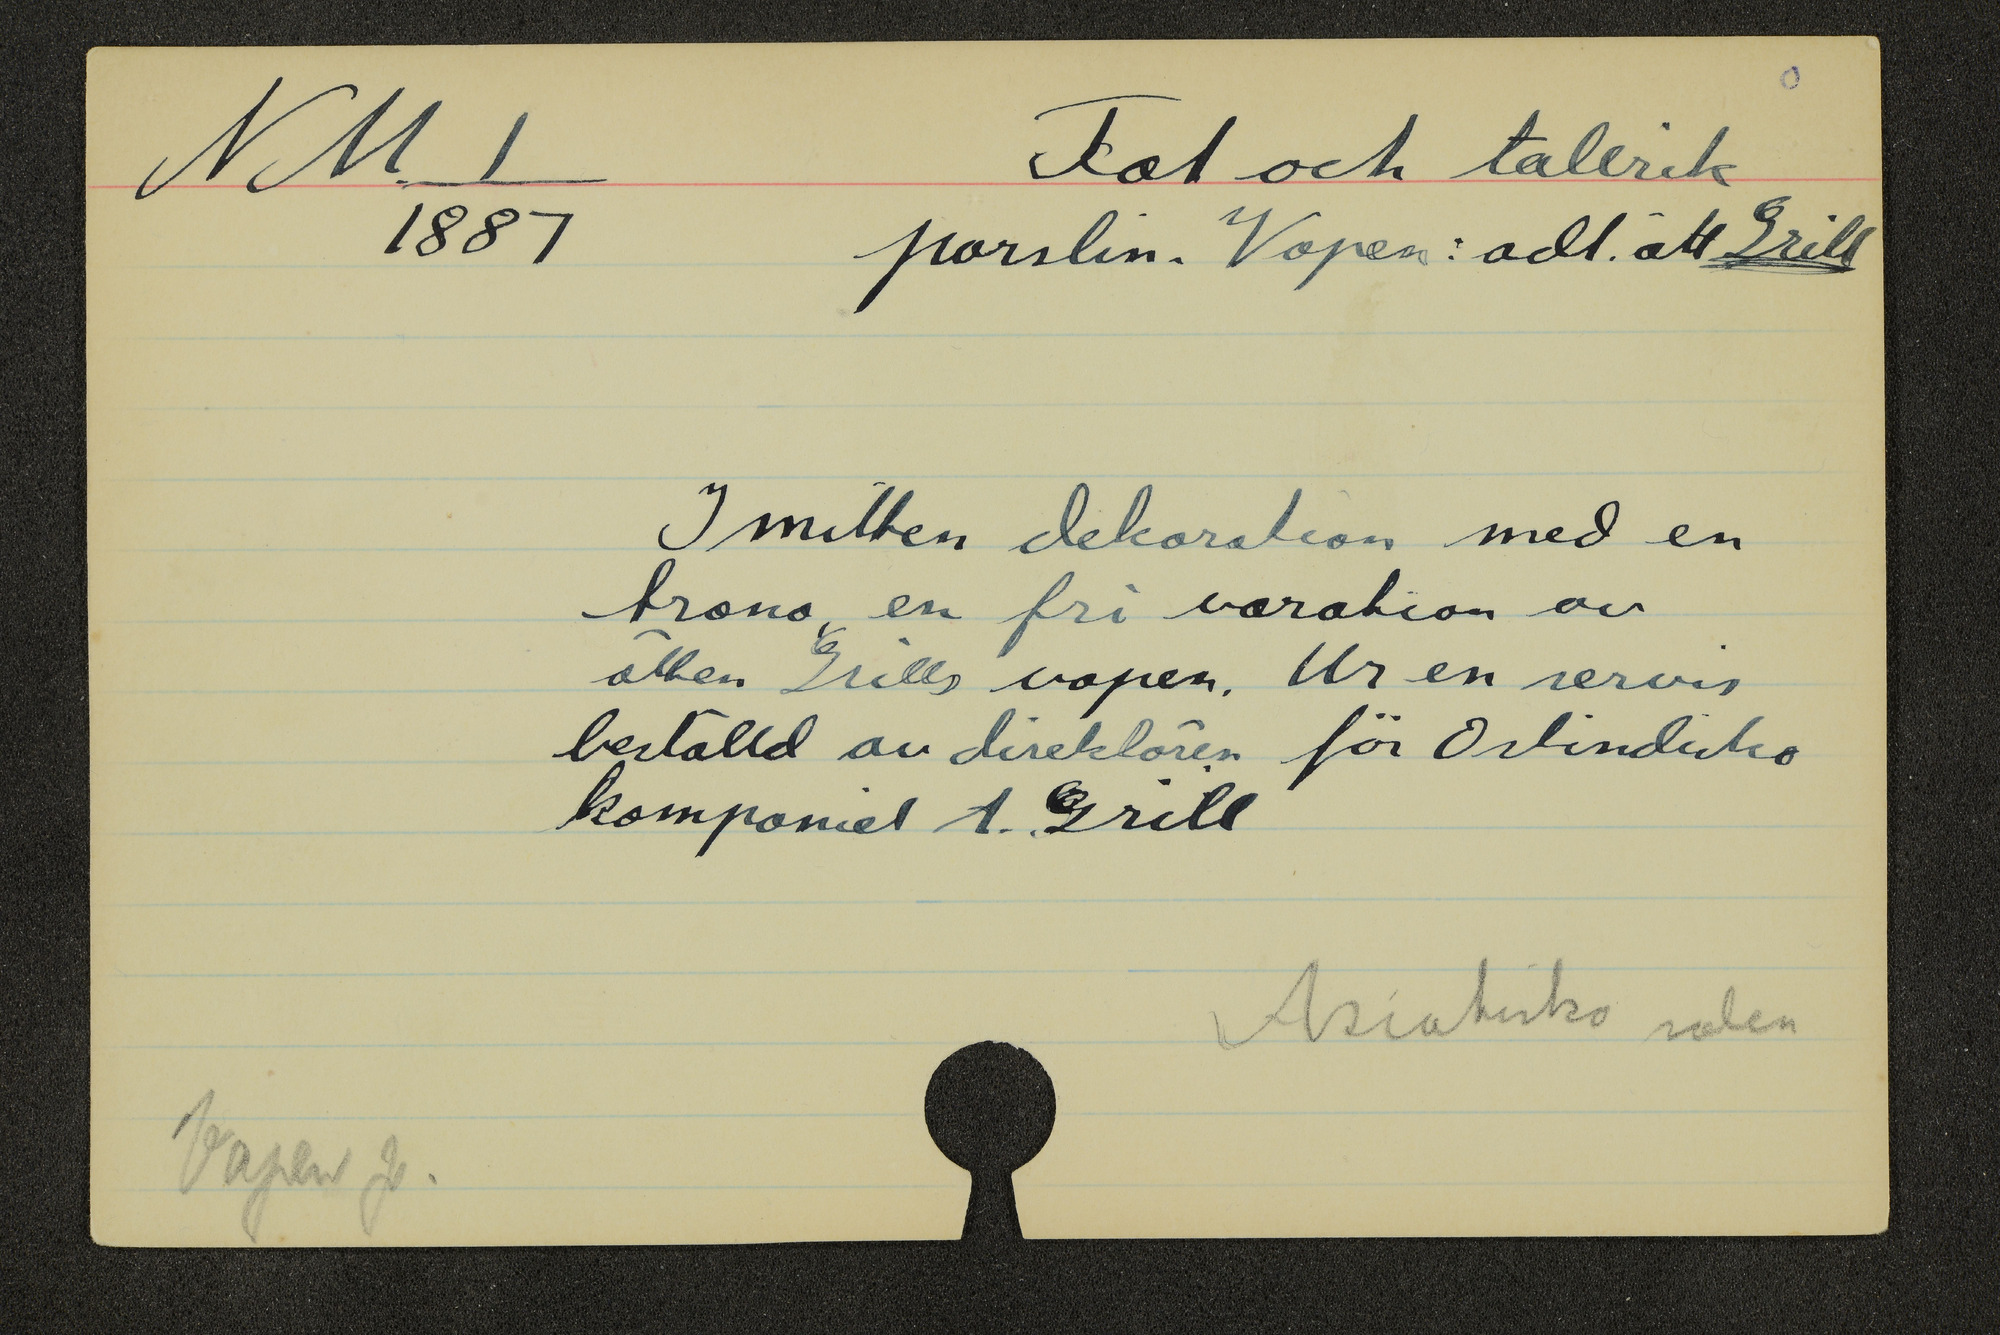 N M. 1
1887
Fat och tallrik
porslin. Vapen: adl. ätt Grill
I mitten dekoration med en
trana, en fri varation av
ätten Grills vapen. Ur en servis
beställd av direktören för Ostindiska
kompaniet A. Grill
Asiatiska salen
Vapen